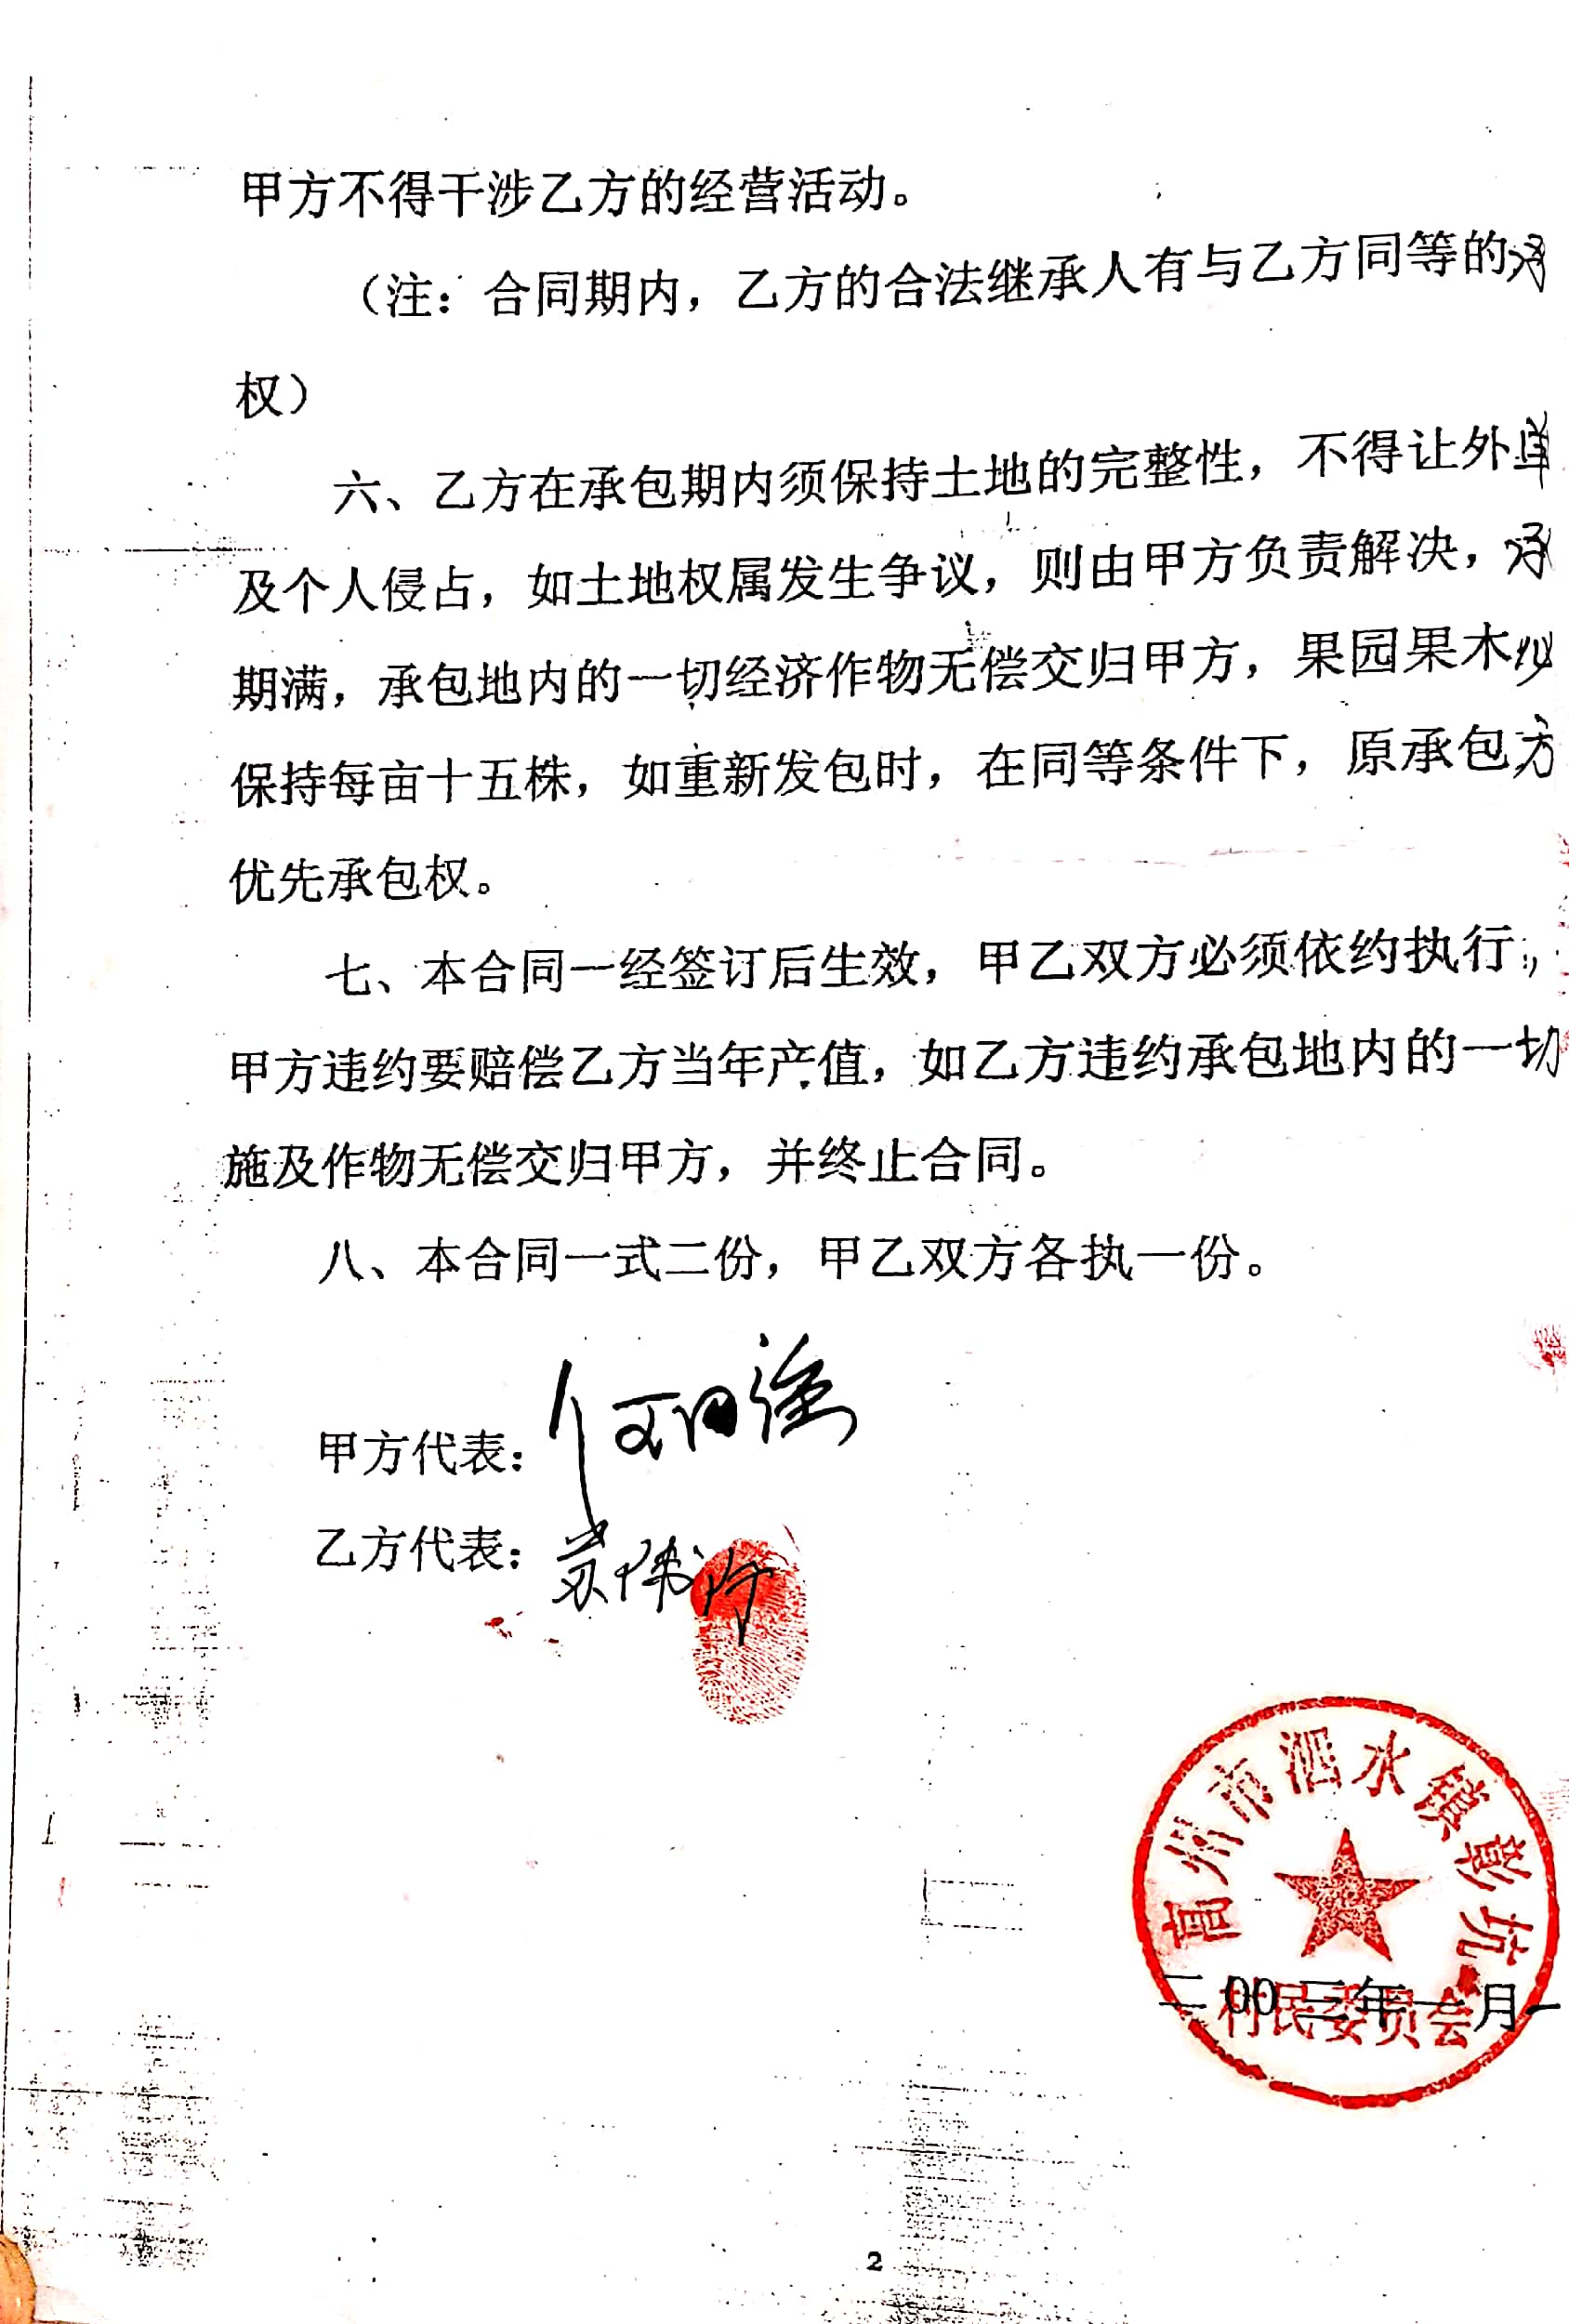 甲方不得干涉乙方的经营活动。
（注：合同期内，乙方的合法继承人有与乙方同等的承
权）
六、乙方在承包期内须保持土地的完整性，不得让外单
及个人侵占，如土地权属发生争议，则由甲方负责解决，承
期满，承包地内的一切经济作物无偿交归甲方，果园果木必
保持每亩十五株，如重新发包时，在同等条件下，原承包方
优先承包权。
七、本合同一经签订后生效，甲乙双方必须依约执行，
甲方违约要赔偿乙方当年产值，如乙方违约承包地内的一切
施及作物无偿交归甲方，并终止合同。
八、本合同一式二份，甲乙双方各执一份。
甲方代表：
乙方代表：苏伟
高州市泗水镇彭坑
村民委员会
二00三年一月一
2